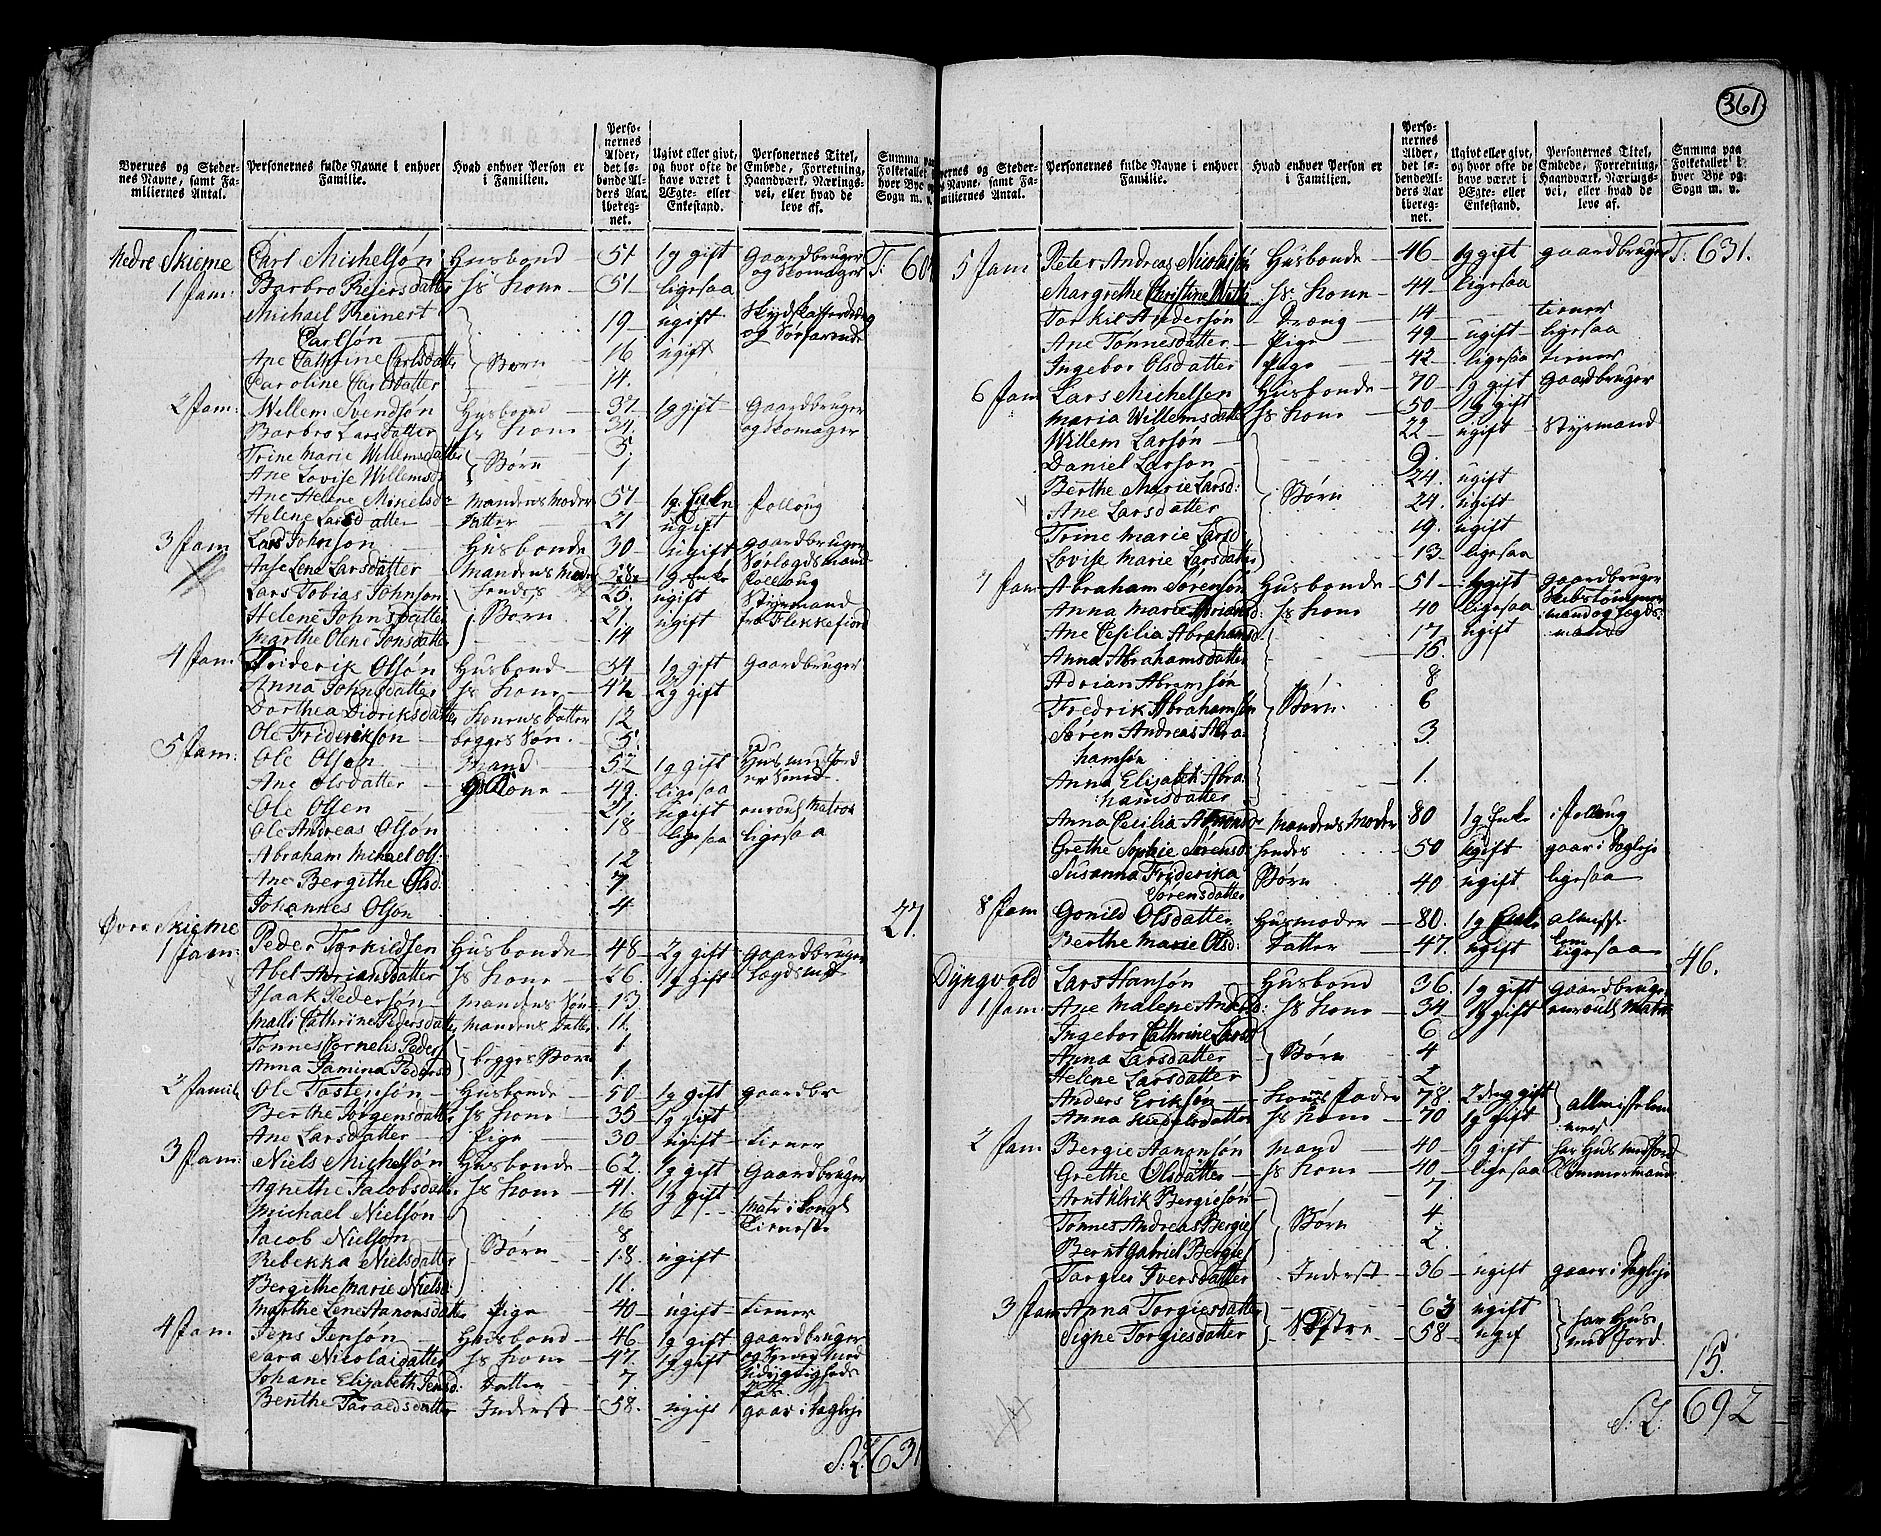 361
Byernes og Stedernes Navne, samt Familiernes Antal. Personernes fulde Navne i enhver Familie. Hvad enhver Person er i Familien. Personernes Alder, det løbende Alders Aar iberegnet. Ugivt eller givt, og hvor ofte de have været i Ægte- eller Enkestand. Personernes Titel, Embede, Forretning, Haandværk, Næringsvei, eller hvad de leve af. Summa paa Folketallet i hver Bye og Sogn m. v.
Nedre Skieme Carl Michelsøn Husbond 51 1g gift Gaardbruger og Skomager T: 604
1 Fam: Barbro Reiersdatter hs Kone 51 ligesaa
Michael Reinert Carlsøn 19 ugift
Ane Cathrine Carlsdatter Børn 16 ugift
Caroline Carlsdatter 14.
2 Fam: Willem Svendsøn Husbond 37. 1g gift Gaardbruger
Barbro Larsdatter hs Kone 34. og Skomager
Trine Marie Willemsdatter Børn 5.
Ane Lovise Willemsd: 1
Ane Helene Mikelsd: Mandens Moder 57 1g Enke
Helene Larsdatter Datter 21 ugift
3 Fam Lars Johnson Husbonde 30 ugift gaardbruger
Aase Lene Larsdatter Mandens Moder 58 1g Enke
Lars Tobias Johnson hendes 25. ugift Styrmand
Helene Johnsdatter Børn 21. ugift fra Flekkefiord
Marthe Oleni Jonsdatter 14
4 Fam: Friderik Olsøn Husbond 34 1g gift Gaardbruger
Anna Johnsdatter hs Kone 42 2g gift
Dorthea Didriksdatter Konens Datter 12
Ole Friderikson begges Søn 5.
5 Fam: Ole Olson Mand 52 1g gift Huus med Jord
Ane Olsdatter hs Kone 49. ligesaa
Ole Olsen 21. ugift enroul Matros
Ole Andreas Olsøn 18 ligesaa ligesaa
Abraham Michael Ols: 12
Ane Bergithe Olsd: 7
Johannes Olson 4
27.
Øvre Skieme
1 Fam: Peder Torkildsen Husbonde 48 2g gift Gaardbruger
Abel Adriansdatter hs Kone 26. 1g gift Lægdsmd
Isaak Pederson Mandens Søn 13
Malli Cathrine Pedersdatter Mandens Datter 11.
Tønnes Cornelis Peders begges Børn 1
Anna Jamina Pedersd 1.
2 Famil: Ole Tostensøn Husbonde 50 1g gift gaardbr
Berthe Jørgensdatter hs Kone 35 1g gift
Ane Larsdatter Pige 30 ugift tiener
3 Fam: Niels Michelsøn Husbonde 62. 1g gift Gaardbruger
Agnethe Jacobsdatter hs Kone 41. 1g gift
Michael Nielsøn 16 Matr: i Kongl Tieneste
Jacob Nielson Børn 8
Rebekka Nielsdatter 18 ugift
Bergithe Marie Nielsd: 11.
Marthe Lene Aanonsdatter Pige 40 ugift tiener
4 Fam: Jens Jensøn Husbond 46. 1g gift gaardbruger
Sara Nicolaisdatter hs Kone 47. 1g gift
Johane Elizabeth Jensd: Datter 7.
Benthe Taraldsdatter Inderst 58. ugift gaar i Dagleje
S: L: 631
Byernes og Stedernes Navne, samt Familiernes Antal. Personernes fulde Navne i enhver Familie. Hvad enhver Person er i Familien. Personernes Alder, det løbende Alders Aar iberegnet. Ugivt eller givt, og hvor ofte de have været i Ægte- eller Enkestand. Personernes Titel, Embede, Forretning, Haandværk, Næringsvei, eller hvad de leve af. Summa paa Folketallet i hver Bye og Sogn m. v.
5 Fam Peter Andreas Nicolaisøn Husbonde 46 1g gift gaardbruger T: 631.
Margrethe Christine hs Kone 44 ligesaa
Torkil Andersøn Dræng 14 tiener
Ane Tønnesdatter Pige 49 ugift ligesaa
Ingebor Olsdatter Pige 42 ligesaa tiener
6 Fam Lars Michelsen Husbonde 70 1g gift Gaardbruger
Maria Willemsdatter hs Kone 50 1g gift
Willem Larsøn 22 ugift Styrmand
Daniel Larson 9.
Berthe Marie Larsd: Børn 24. ugift
Ane Larsdatter 24. ugift
Trine Marie Larsd 19. ugift
Lovise Marie Larsdatter 13. ligesaa
7 Fam Abraham Sørensøn Husbonde 51 1g gift gaardbruger
Anna Marie Adriansd: hs Kone 40 ligesaa
Ane Cesilia Abrahamsd 17. ugift
Anna Abrahamsdatter 15.
Adrian Abramsøn 8
Fredrik Abrahamsøn Børn 6
Søren Andreas Abrahamsøn 3.
Anna Elisabet Abrahamsdatter 1.
Anna Cecilia Mandens Moder 80 1g Enke i Folloug
Grethe Sophie Sørensd: hendes 50 ugift gaar i Dagleje
Susanna Friderika Sørensdatter Børn 40 ugift ligesaa
8 Fam Gonild Olsdatter Husmoder 80. 1g Enke almisse lem
Berthe Marie Olsd: Datter 47. ugift ligesaa
46.
Dyngvold Lars Hansøn Husbond 36. 1g gift gaardbruger
1 Fam: Ane Malene Andersd: hs Kone 34 1g gift enroull Matr
Ingebor Cathrine Larsd 6
Anna Larsdatter Børn 4
Helene Larsdatter 2.
Anders Erikson Konens Fader 78. 2den g gift
Anna hs Kone 70 1g gift
2 Fam Bergie Aanonsøn Mand 40 1g gift har Huus med Jord
Grethe Olsdatter hs Kone 40 ligesaa Tømmermand
Arnt Ulrik Bergiesøn 7.
Tønnes Andreas Bergies Børn 4.
Bernt Gabriel Bergies 2.
Torgier Iversdatter Inderst 36 ugift gaar i Dagleje
3 Fam Anna Torgiesdatter 63 ugift har Huus
Signe Torgiesdatter 58 ugif med Jord.
15.
S: L: 692